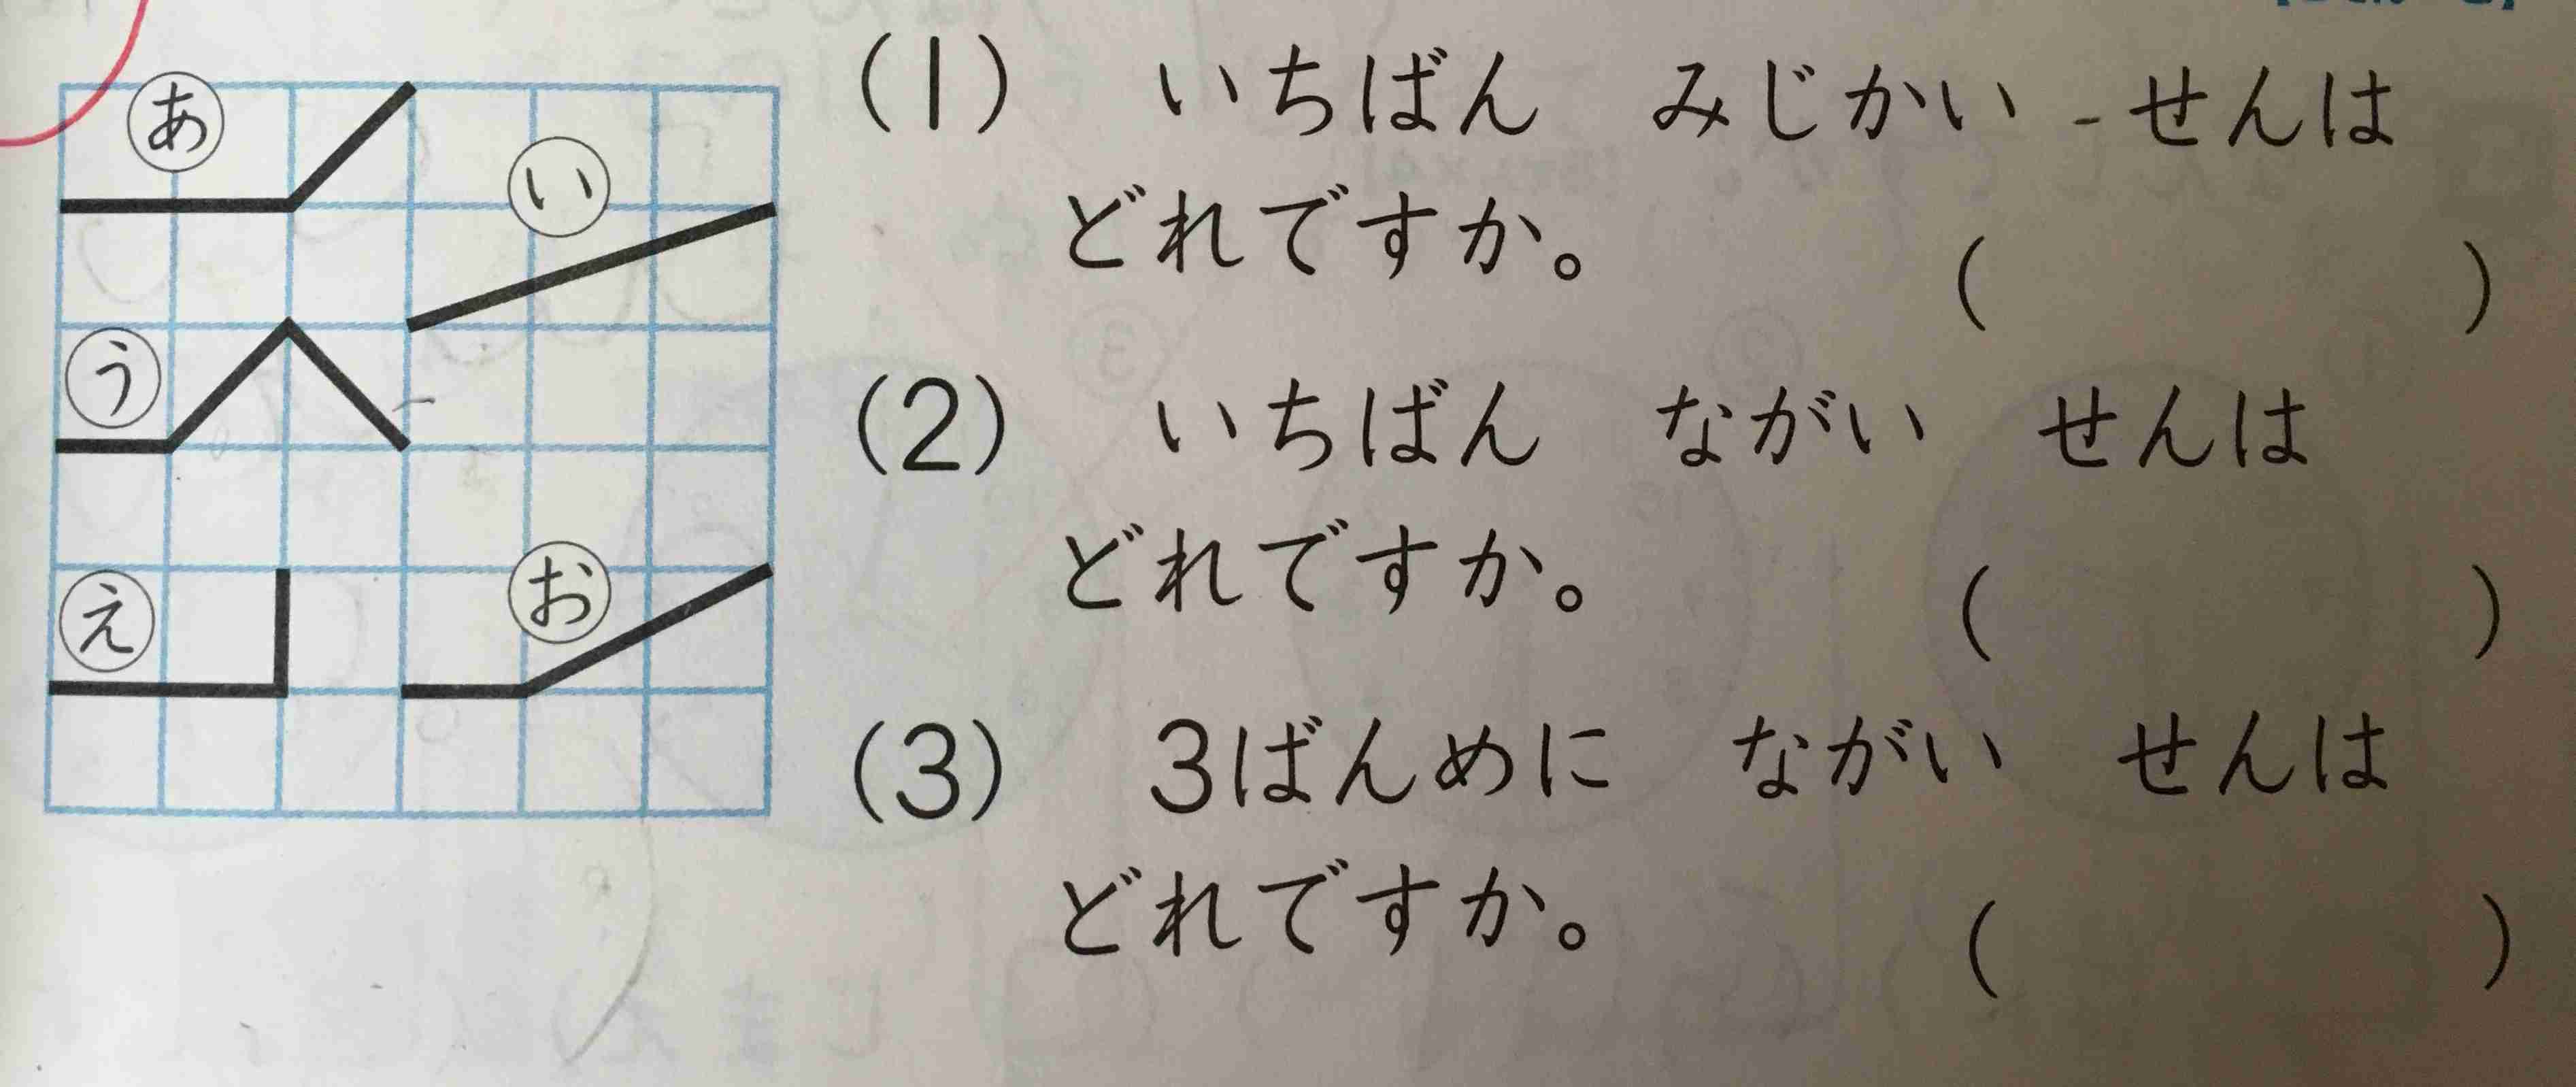 あ
い
う
え
お
(1) いちばん みじかい せんは
どれですか。
( )
(2) いちばん ながい せんは
どれですか。
( )
(3) 3ばんめに ながい せんは
どれですか。
( )